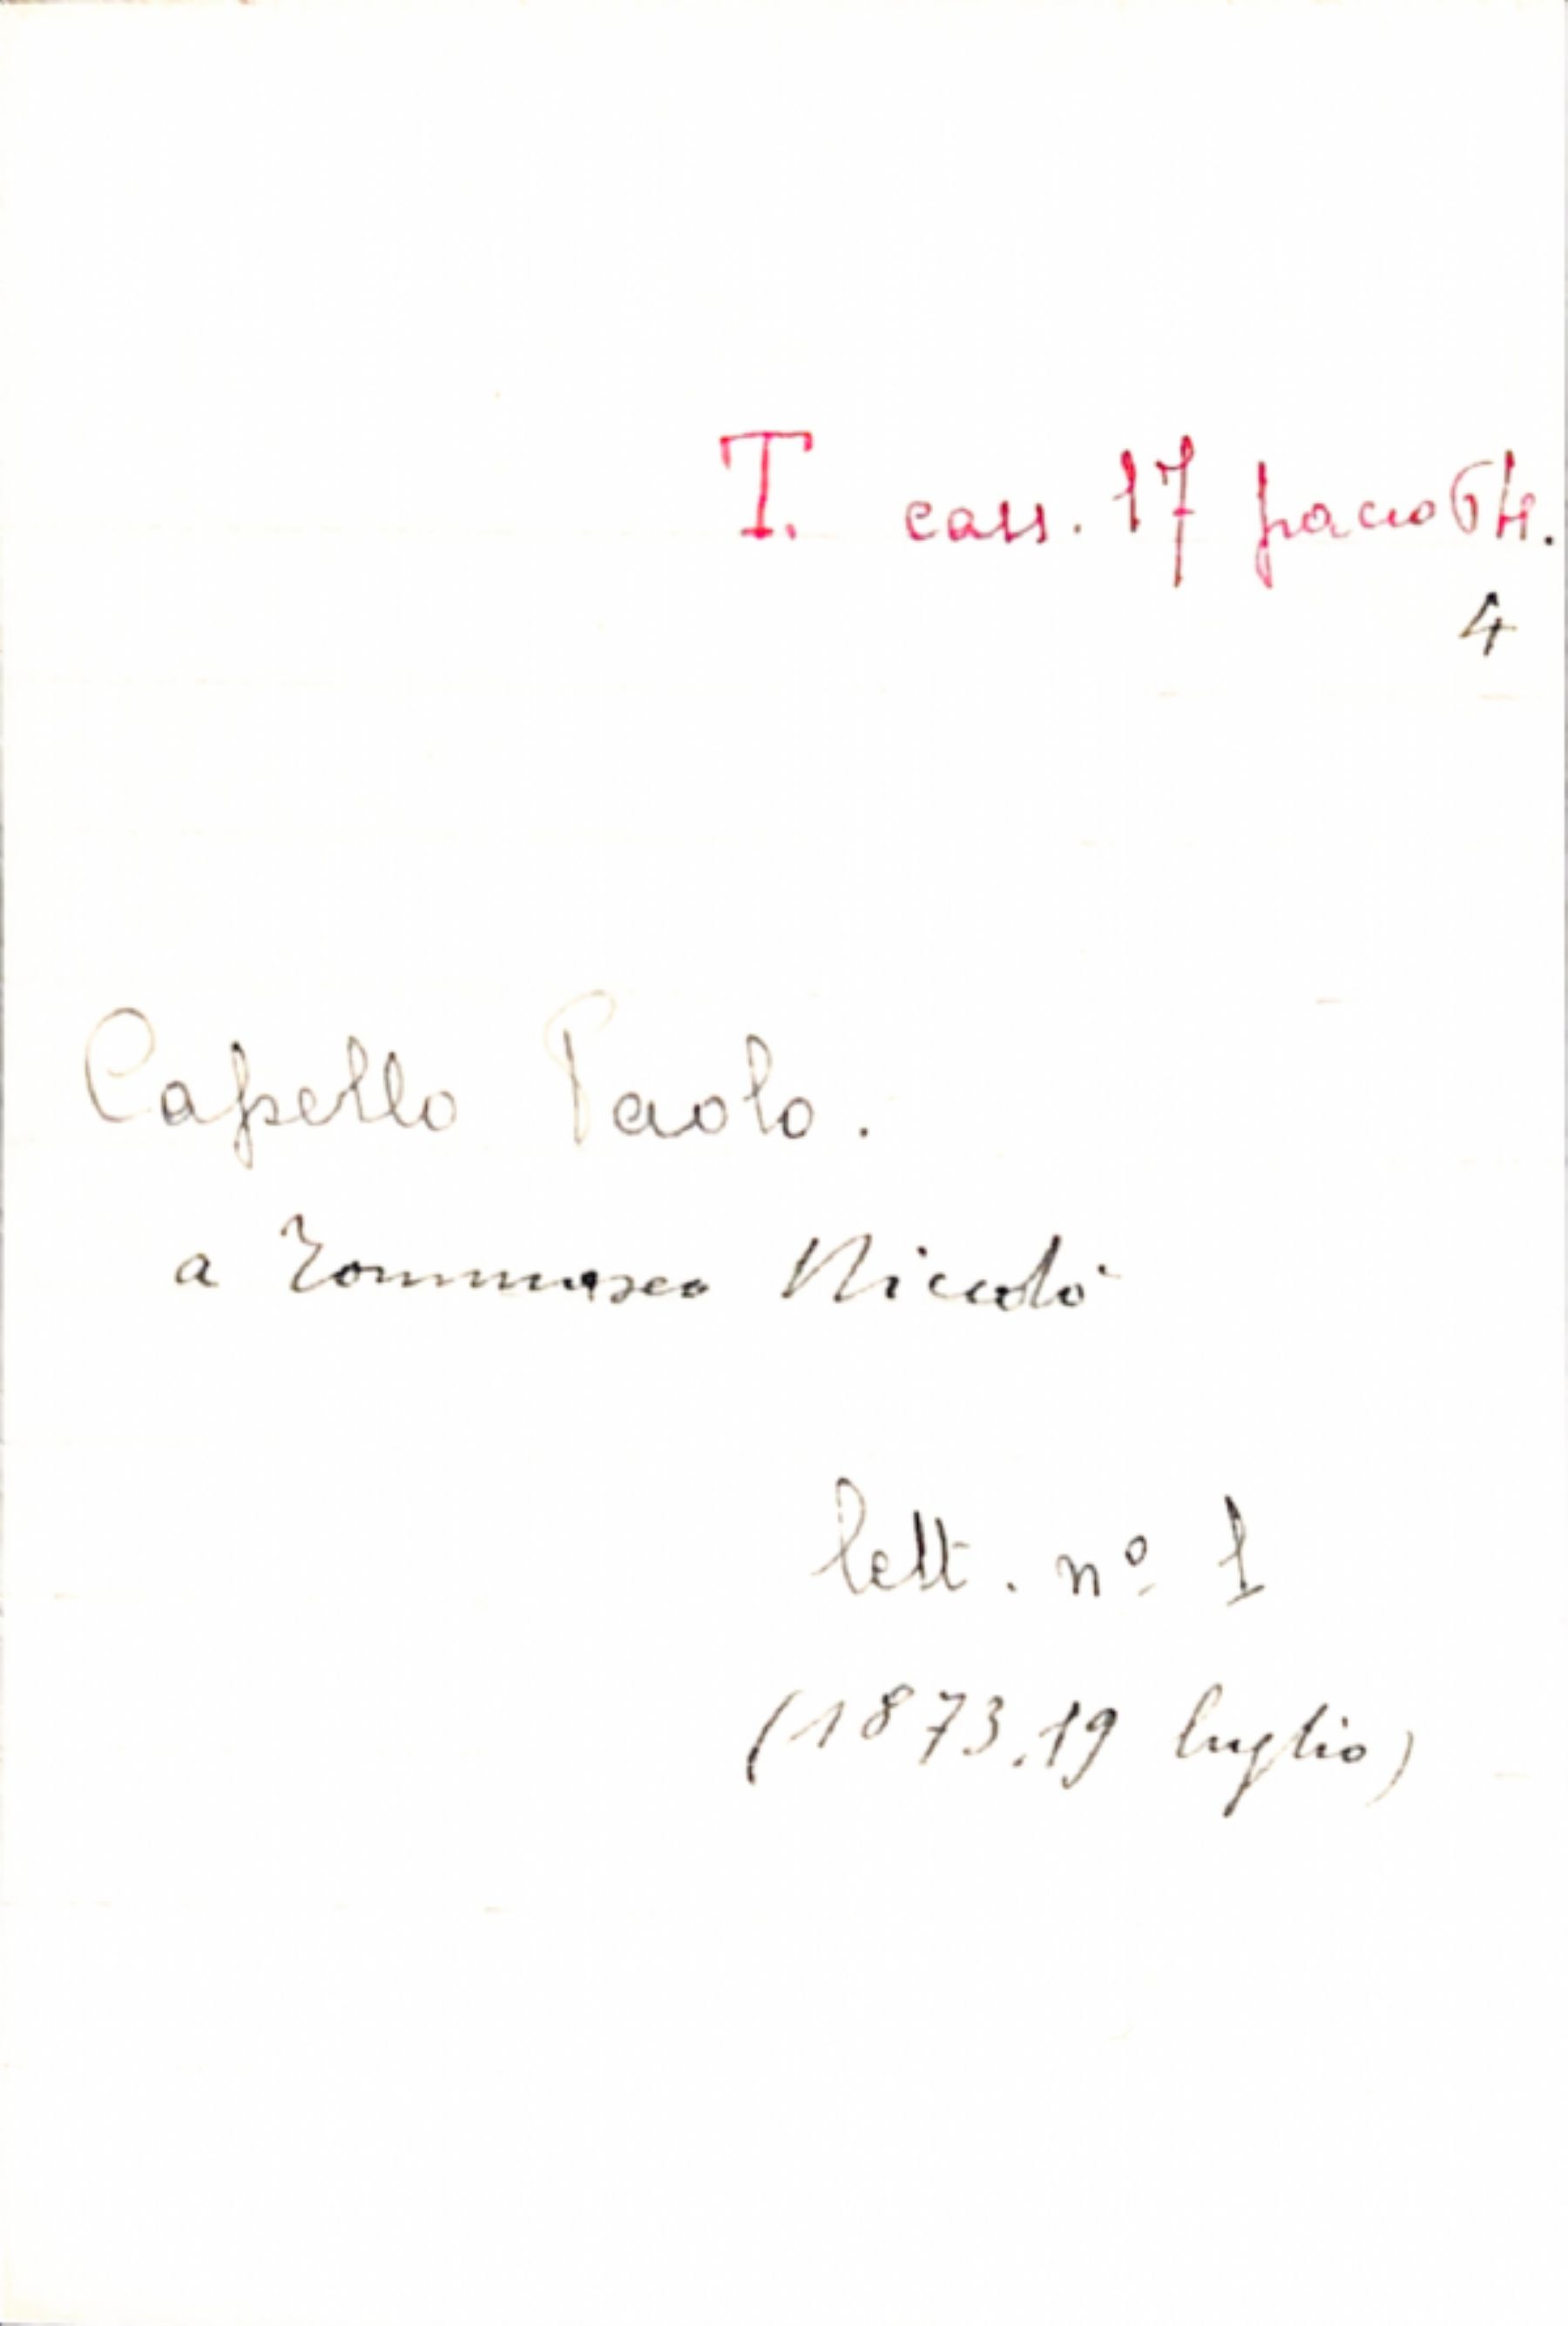 T. cass. 17 pacco 64.
4
Capello Paolo.
a Tommaseo Niccolò
lett. nº 1
(1873.19 luglio)